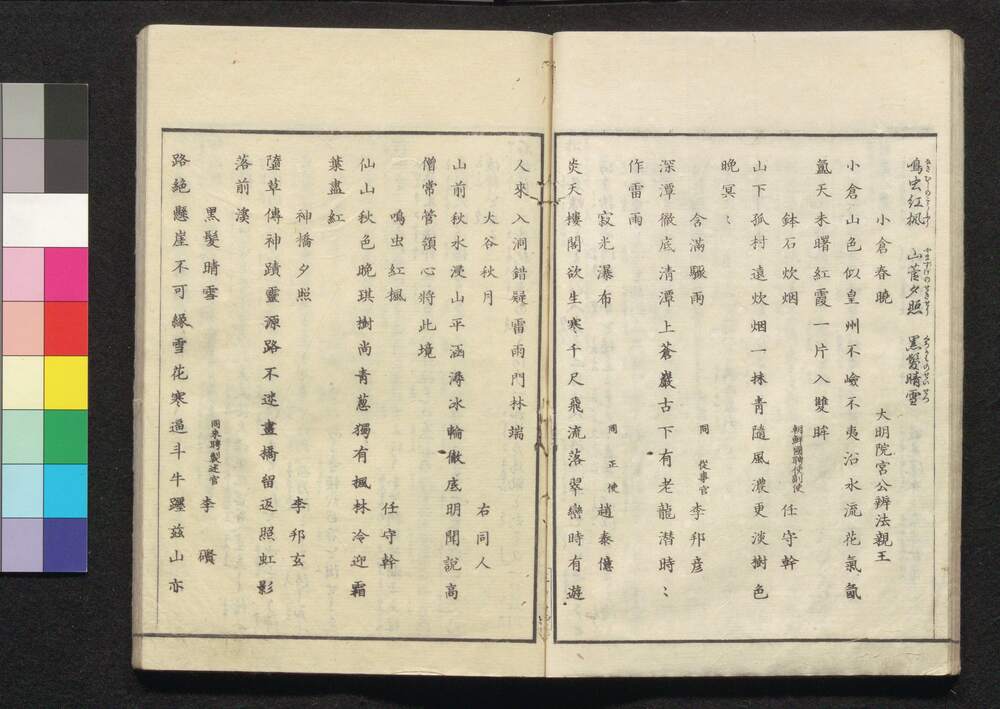 鳴虫紅楓 山菅夕照 黒髪晴雪
大明院宮公辨法親王
小倉春曉
小倉山色似皇州不嶮不夷沿水流花氣氤
氳天未曙紅霞一片入雙眸
鉢石炊烟 朝鮮國聘使副使 任守幹
山下孤村遠炊烟一抹青隨風濃更淡樹色
晩冥〻
含滿驟雨 同 從事官 李邦彦
深潭徹底清潭上蒼巖古下有老龍潜時〻
作雷雨
寂光瀑布 同 正使 趙泰億
炎天樓閣欲生寒千尺飛流落翠巒時有遊
人來入洞錯疑雷雨門林端
大谷秋月 右同人
山前秋水浸山平涵得冰輪徹底明聞說高
僧常管領心將此境
鳴虫紅楓 任守幹
仙山秋色晩琪樹尚青蔥獨有楓林冷迎霜
葉盡紅
神橋夕照 李邦玄
墮草傳神蹟靈源路不迷畫橋留返照虹影
落前溪
黒髮晴雪 同來聘製述官 李礥
路絶懸崖不可緣雪花寒逼斗牛躔茲山亦